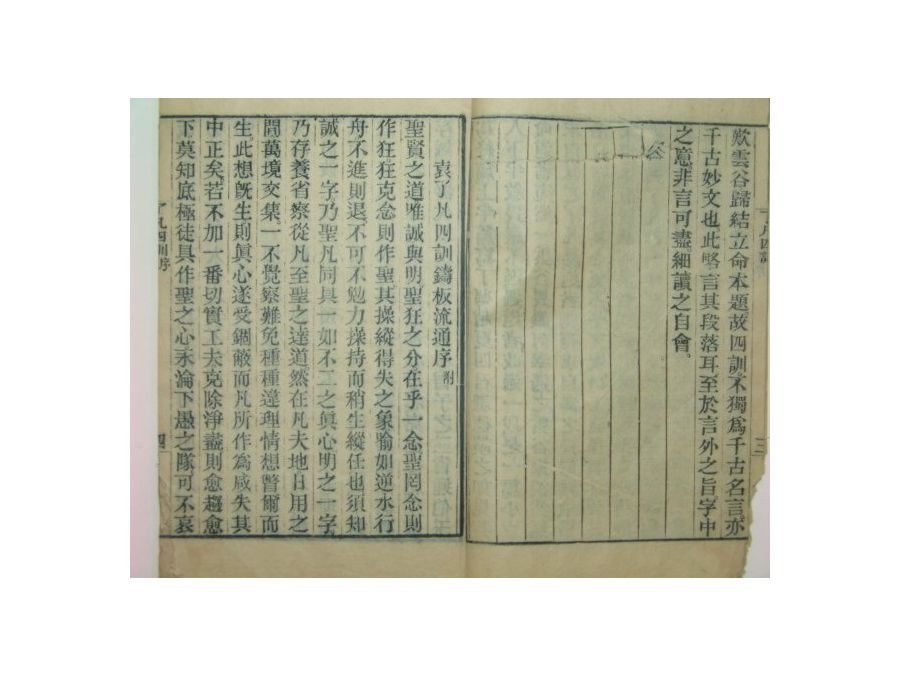 歟雲谷歸結立命本題故四訓不獨爲千古名言亦
千古妙文也此略言其段落耳至於言外之旨字中
之意非言可盡細讀之自會。
三
袁了凡四訓鑄板流通序 附
聖賢之道唯誠與明聖狂之分在乎一念聖罔念則
作狂狂克念則作聖其操縱得失之象喻如逆水行
舟不進則退不可不勉力操持而稍生縱任也須知
誠之一字乃聖凡同具一如不二之眞心明之一字
乃存養省察從凡至聖之達道然在凡夫地日用之
間萬境交集一不覺察難免種種違理情想瞥爾而
生此想旣生則眞心遂受錮蔽而凡所作爲咸失其
中正矣若不加一番切實工夫克除淨盡則愈趨愈
下莫知底極徒具作聖之心永淪下愚之隊可不哀
了凡四訓序
四